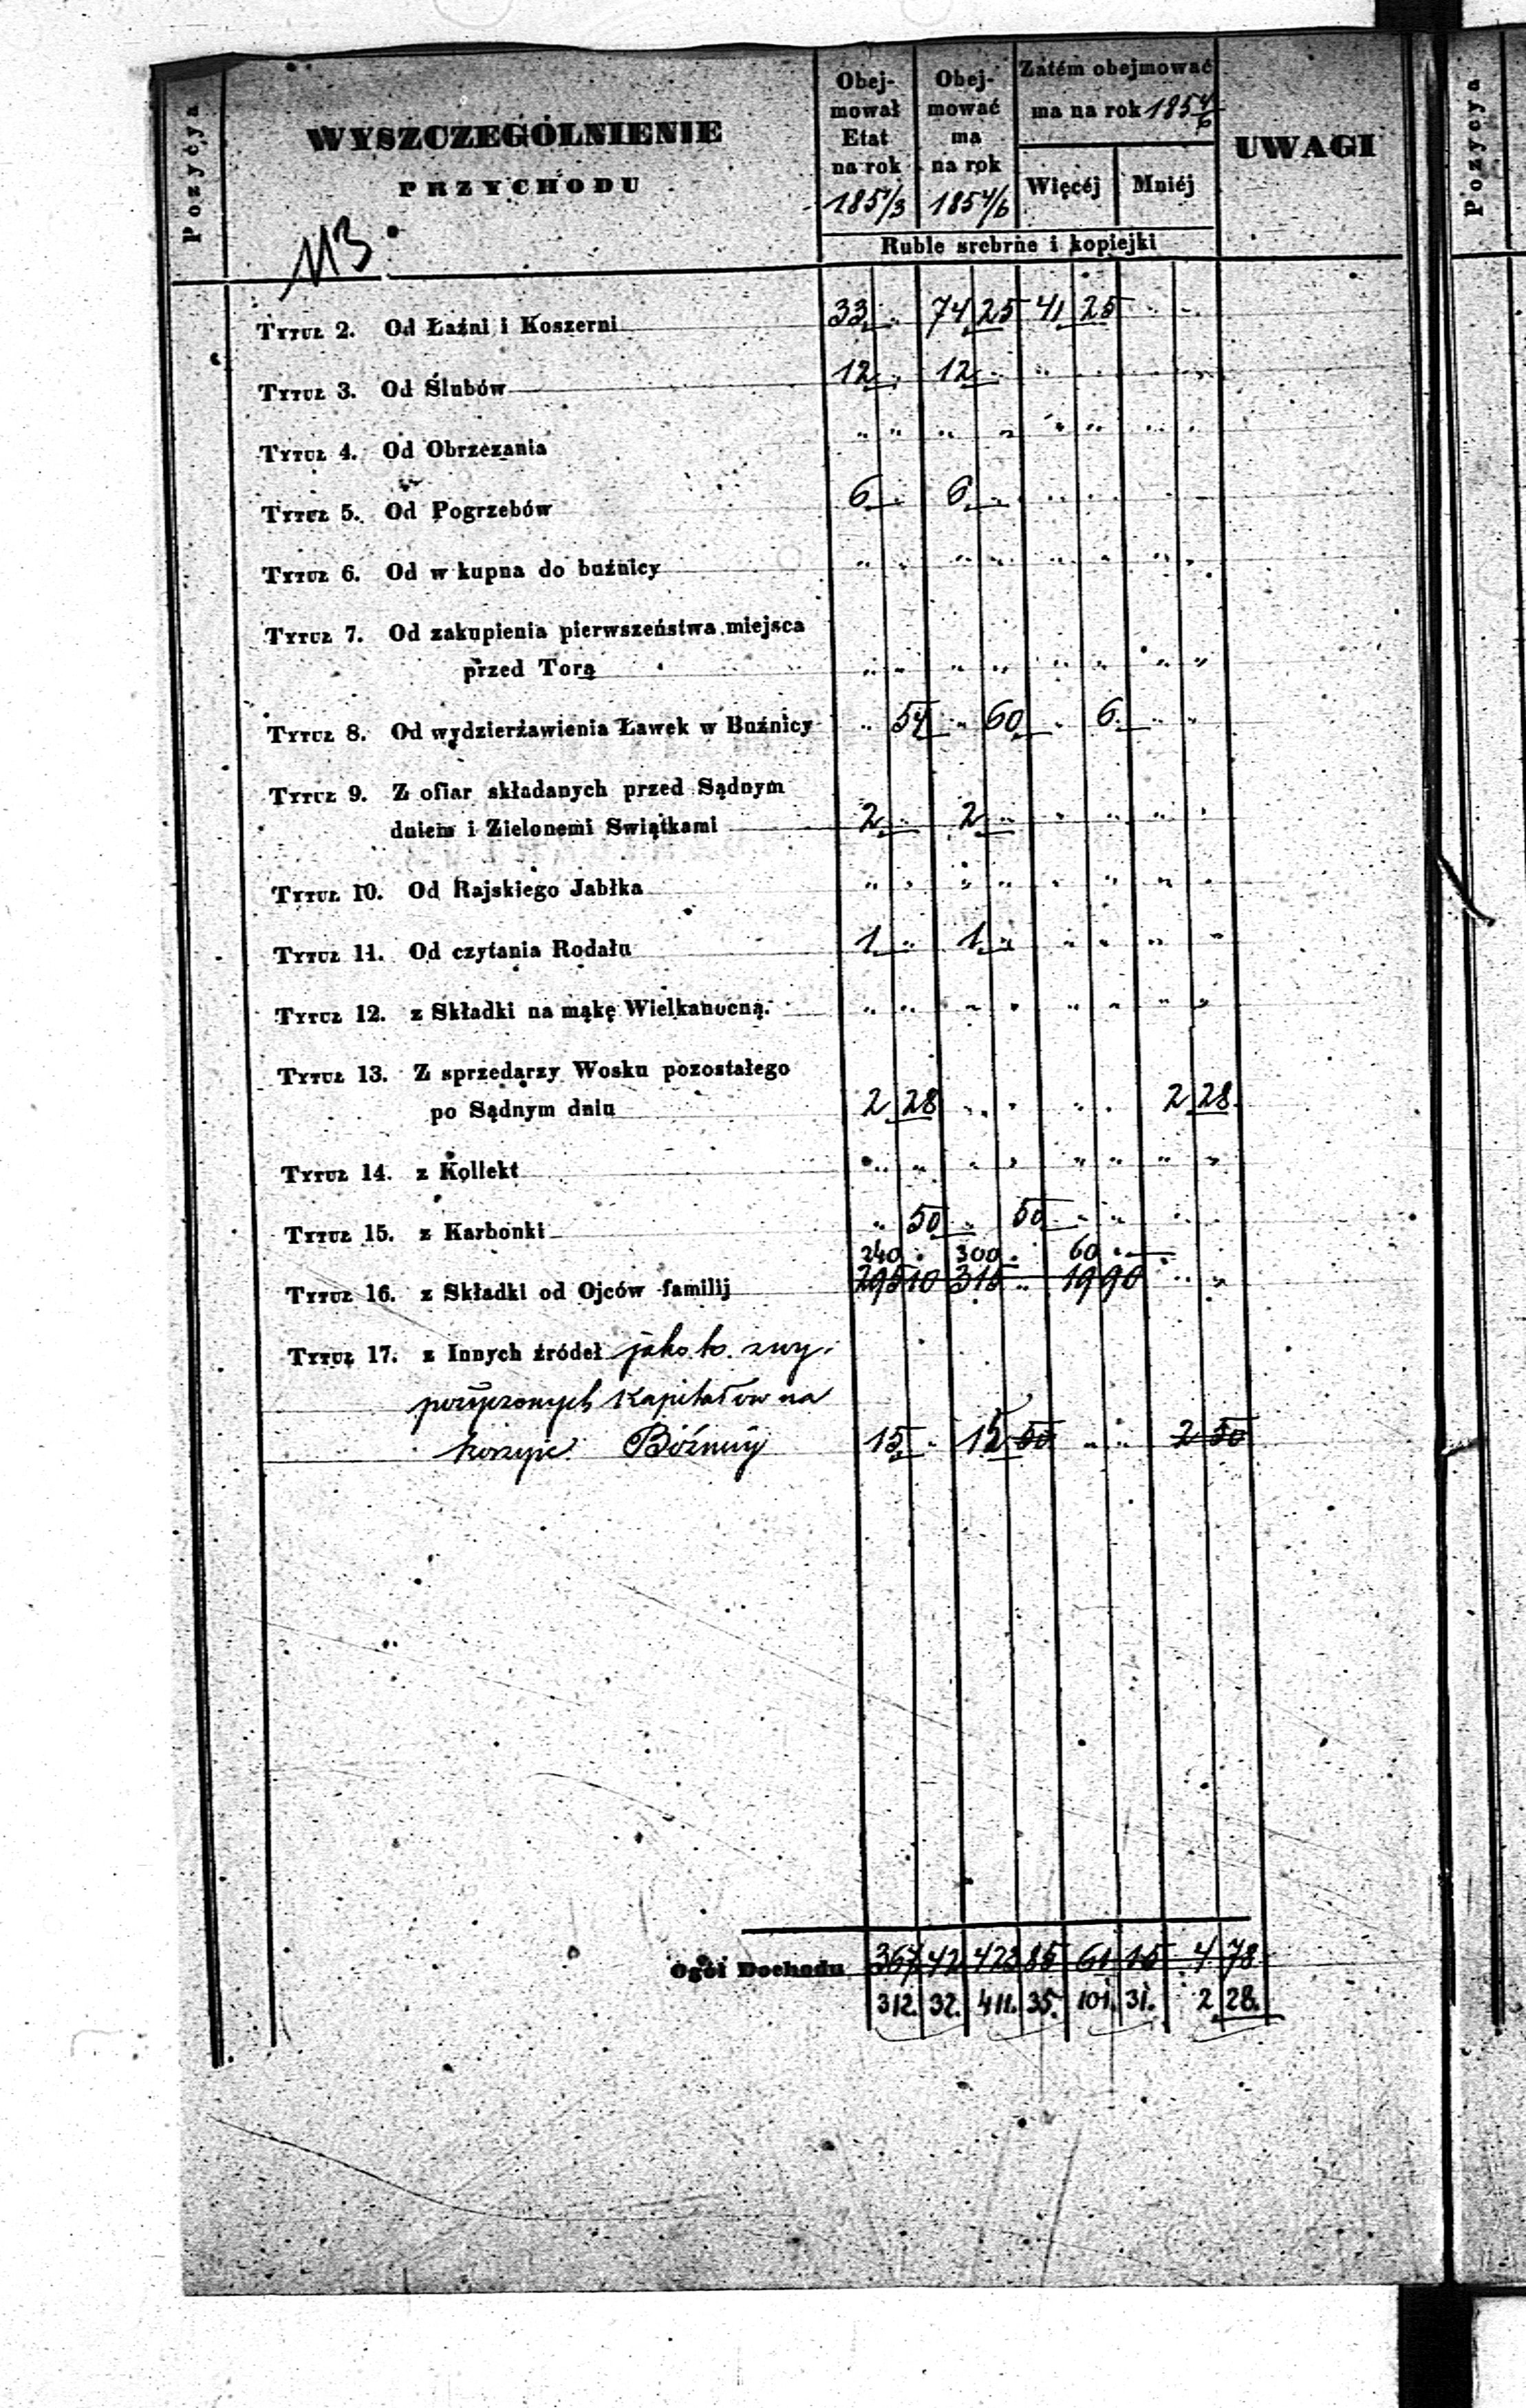 Pozycya
WYSZCZEGÓLNIENIE
PRZYCHODU
113
Obejmował Etat na rok 1851/3
Obejmować ma na rok 1854/6
Zatém obejmować ma na rok 1854/6
Więcéj Mniéj
UWAGI
Pozycya
Ruble srebrne i kopiejki
Tytuł 2. Od Łaźni i Koszerni 33 „ 74 25 41 25 „ „
Tytuł 3. Od Ślubów 12 „ 12 „ „ „ „ „
Tytuł 4. Od Obrzezania „ „ „ „ „ „ „ „
Tytuł 5. Od Pogrzebów 6 „ 6 „ „ „ „ „
Tytuł 6. Od w kupna do buźnicy „ „ „ „ „ „ „ „
Tytuł 7. Od zakupienia pierwszeństwa miejsca
przed Torą „ „ „ „ „ „ „ „
Tytuł 8. Od wydzierżawienia Ławek w Buźnicy „ 54 „ 60 „ 6 „ „
Tytuł 9. Z ofiar składanych przed Sądnym
dniem i Zielonemi Swiątkami 2 „ 2 „ „ „ „ „
Tytuł 10. Od Rajskiego Jabłka „ „ „ „ „ „ „ „
Tytuł 11. Od czytania Rodału 1 „ 1 „ „ „ „ „
Tytuł 12. z Składki na mąkę Wielkanocną. „ „ „ „ „ „ „ „
Tytuł 13. Z sprzedarzy Wosku pozostałego
po Sądnym dniu 2 28 „ „ „ „ 2 28
Tytuł 14. z Kollekt „ „ „ „ „ „ „ „
Tytuł 15. z Karbonki „ 50 „ 50 „ „ „ „
240 „ 300 „ 60 „
Tytuł 16. z Składki od Ojców familij 295 10 315 „ 19 90 „ „
Tytuł 17. z Innych źródeł jako to. z wy
pożyczonych Kapitałów na
Bóżnicy 15 „ 15 50 „ „ 2 50
Ogół Dochodu 367 42 423 85 61 15 4 78
312. 32. 411. 35. 101. 31. 2 28.